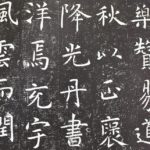 樂贊易道
秋以正褒
降光丹書
洋焉充宇
風雲而潤